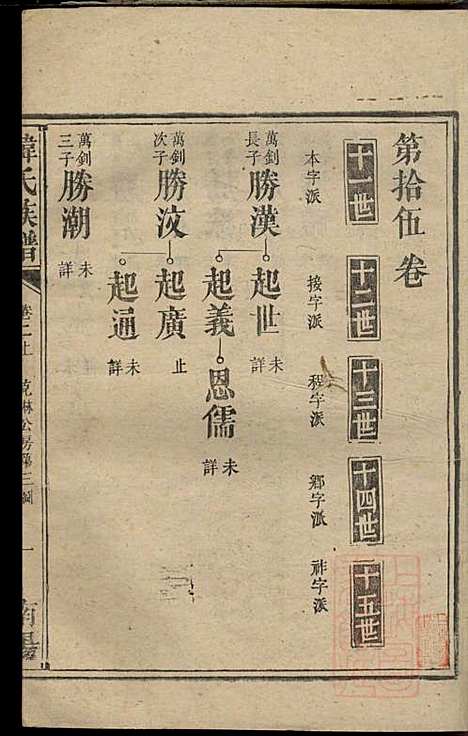 第拾伍卷
十一世
十二世
十三世
十四世
十五世
本字派
接字派
程字派
鄉字派
萬釗長子
勝漢
起世
未詳
起義
恩儒
未詳
萬釗次子
勝汶
起廣
止
起通
未詳
萬釗三子
勝潮
未詳
韓氏族譜
卷二上